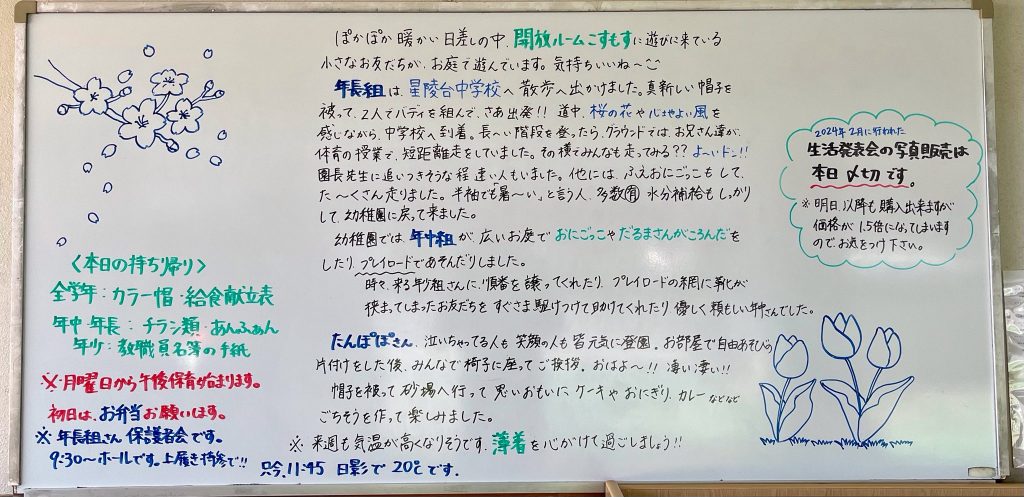 ぽかぽか暖かい日差しの中、開放ルームこすもすに遊びに来ている
小さなお友だちが、お庭で遊んでいます。気持ちいいね〜
年長組は、星陵台中学校へ散歩へ出かけました。真新しい帽子を
被って、2人でバディを組んで、さあ出発!! 道中、桜の花や心地よい風を
感じながら、中学校へ到着。長〜い階段を登ったら、グラウンドでは、お兄さん達が、
体育の授業で、短距離走をしていました。その横でみんなも走ってみる?? よ〜いドン!!
園長先生に追いつきそうな程速い人もいました。他には、ふえおにごっこもして、
た〜くさん走りました。半袖でも「暑〜い」と言う人、多数有 水分補給もしっかり
して、幼稚園に戻って来ました。
幼稚園では、年中組が、広いお庭でおにごっこやだるまさんがころんだを
したり、プレイロードであそんだりしました。
時々、来る年少組さんに、順番を譲ってくれたり、プレイロードの網に靴が
挟まってしまったお友だちをすぐさま駆けつけて助けてくれたり、優しく頼もしい年中さんでした。
たんぽぽさん、泣いちゃってる人も笑顔の人も皆元気に登園。お部屋で自由あそびの
片付けをした後、みんなで椅子に座ってご挨拶。おはよ〜!! 凄い凄い!!
帽子を被って砂場へ行って思いおもいにケーキやおにぎり、カレーなどなど
ごちそうを作って楽しみました。
※ 来週も気温が高くなりそうです。薄着を心がけて過ごしましょう!!
只今、11:45 日影で 20℃です。
〈本日の持ち帰り〉
全学年:カラー帽・給食献立表
年中・年長:チラシ類・あんふぁん
年少:教職員名簿の手紙
※月曜日から午後保育始まります。
初日は、お弁当お願いします。
※ 年長組さん 保護者会です。
9:30〜ホールです。上履き持参で!!
2024年2月に行われた
生活発表会の写真販売は
本日〆切です。
※明日以降も購入出来ますが
価格が1.5倍になってしまいます
のでお気をつけ下さい。